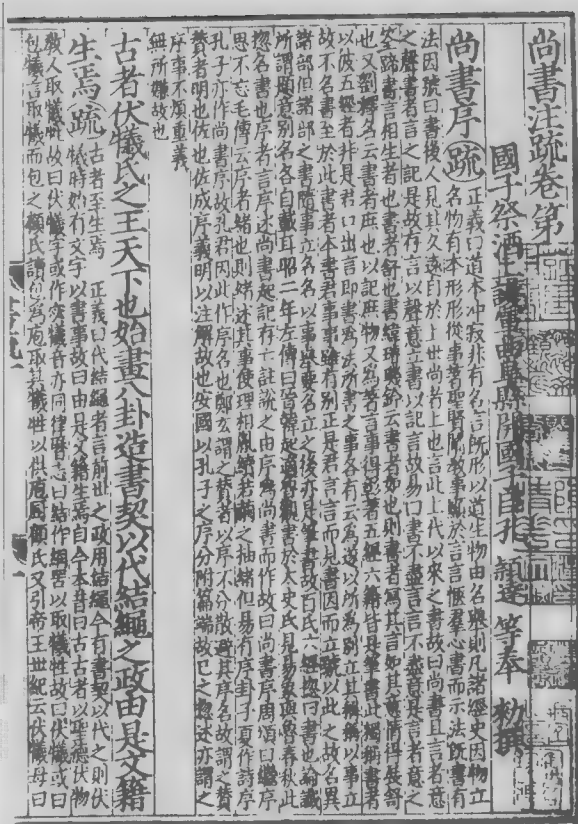 尚書注疏卷第一
國子祭酒上護軍曲阜縣開國子臣孔穎達等奉　勑撰
尚書序
疏
正義曰道本沖寂非有名言既形以道生物由名舉則凡諸經史因物立
名物有本形形從事著聖賢闡教事顯於言言愜羣心書而示法既書有
法因號曰書後人見其久遠自於上世尚者上也言此上代以來之書故曰尚書且言者意
之聲書者言之記是故存言以聲意立書以記言故易曰書不盡言言不盡意是言者意之
筌蹄書言相生者也書者舒也書緯璿璣鈐云書者如也則書者寫其言如其意情得展舒
也又劉熙釋名云書者庶也以記庶物又爲著言事得彰著五經六籍皆是筆書此獨稱書者
以彼五經者非是君口出言即書爲法所書之事各有云爲遂以所爲別立其稱稱以事立
故不名書至於此書者本書君事事雖有別正是君言言而見書因而立號以此之故名異
諸部但諸部之書隨事立名名以事舉要名立之後亦是筆書故百氏六經總曰書也論讖
所謂題意別名各自載耳昭二年左傳曰晉韓起適魯觀書於太史氏見易象與魯春秋此
惣名書也序者言序述尚書起記存亡註說之由序爲尚書而作故曰尚書序周頌曰繼序
思不忘毛傳云序者緒也則緒述其事使理相胤續若繭之抽緒但易有序卦子夏作詩序
孔子亦作尚書序故孔君因此作序名也鄭玄謂之贊者以序不分散避其序名故謂之贊
贊者明也佐也佐成序義明以注解故也安國以孔子之序分附篇端故已之惣述亦謂之
序事不煩重義
無所嫌故也
古者伏犧氏之王天下也始畫八卦造書契以代結繩之政由是文籍
生焉
疏
古者至生焉　正義曰代結繩者言前世之政用結繩今有書契以代之則伏
犧時始有文字以書事故曰由是文籍生焉自今本昔曰古古者以聖德伏物
教人取犧牲故曰伏犧字或作宓犧音亦同律曆志曰結作網罟以取犧牲故曰伏犧或曰
包犧言取犧而包之顧氏讀包爲庖取其犧牲以供庖厨顧氏又引帝王世紀云伏犧母曰